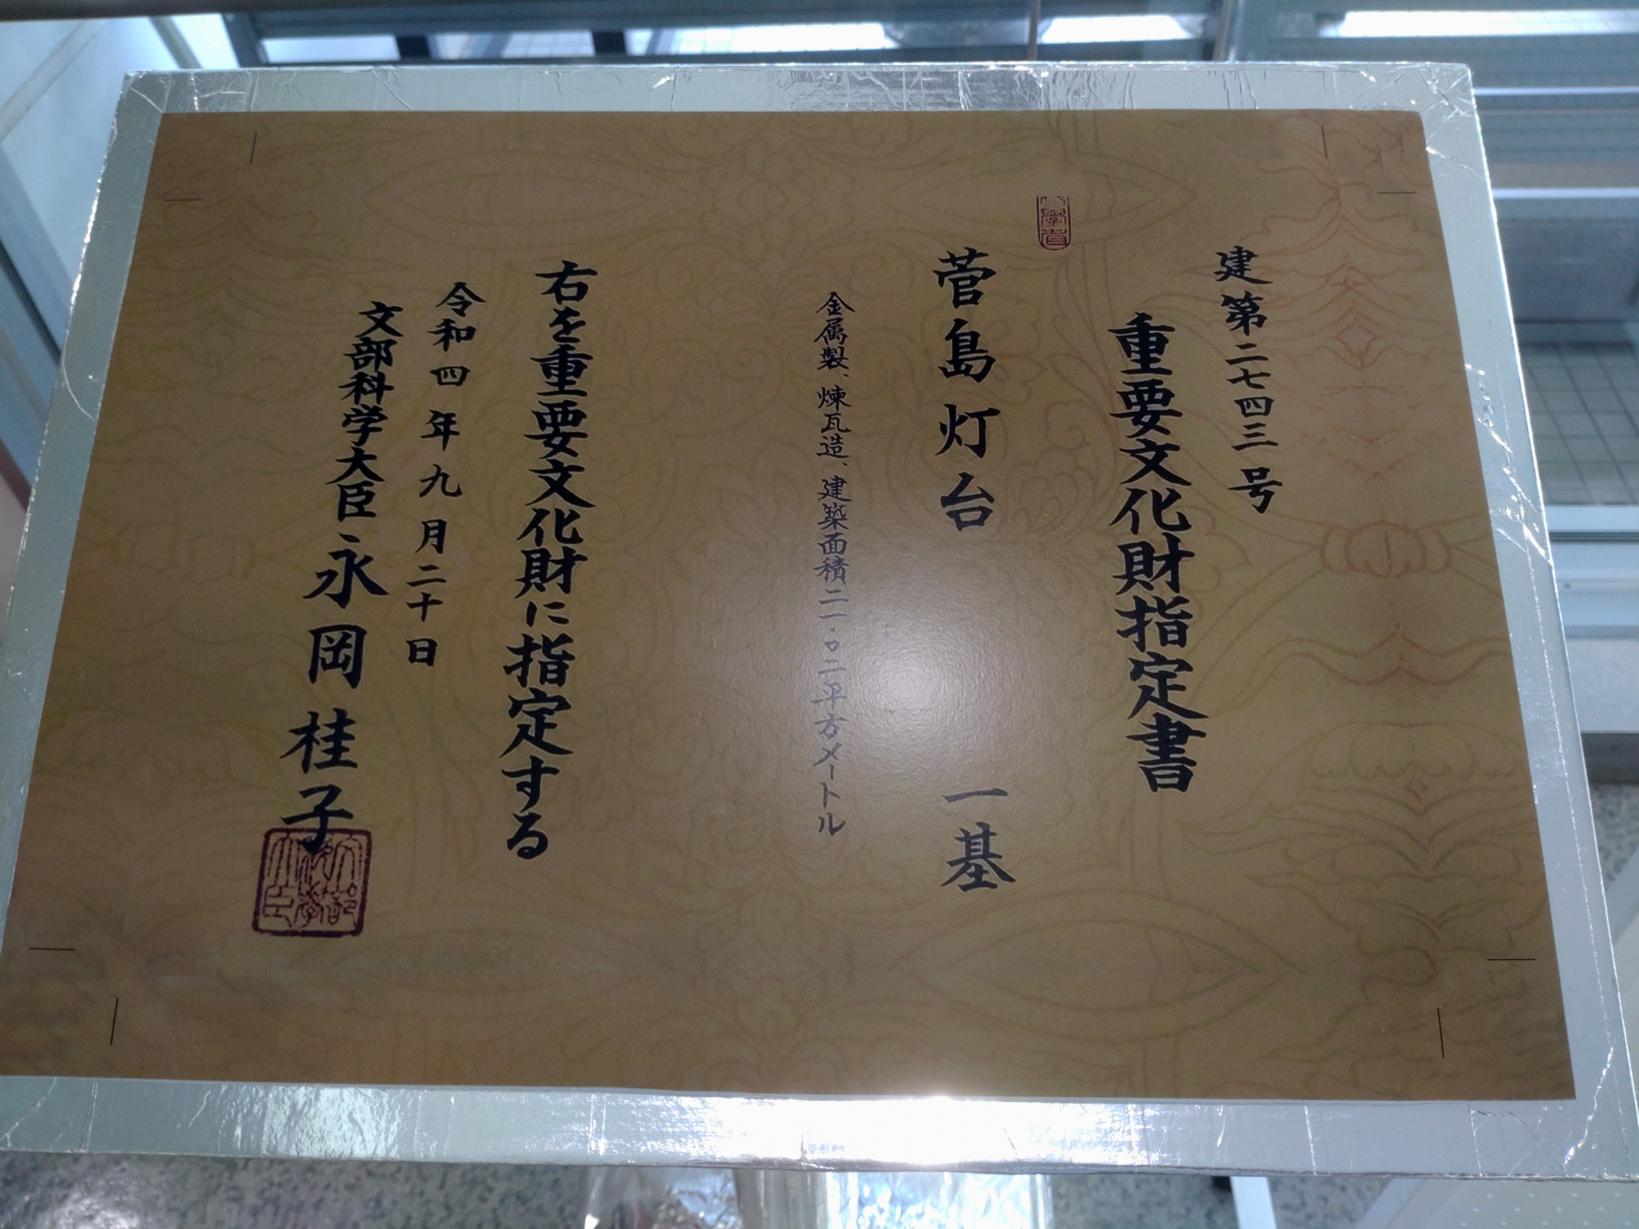 建第二七四三号
重要文化財指定書
菅島灯台 一基
金属製、煉瓦造、建築面積二一・〇二平方メートル
右を重要文化財に指定する
令和四年九月二十日
文部科学大臣 永岡桂子